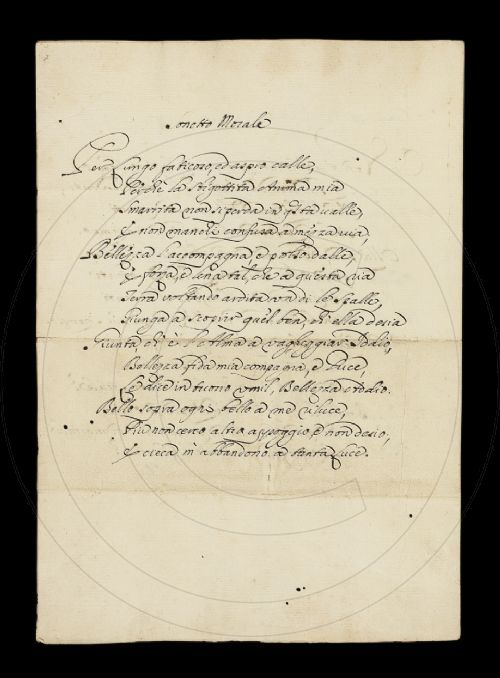 Sonetto Morale
Per lungo faticoso, ed aspro calle,
Perche la sbigottita Anima mia
Smarrita non si perda in questa valle,
E non manchi confusa a mezza via,
Bellezza l'accompagna, e polso dalle,
E forza, e lena tal, che a questa ria
Terra voltando ardita va di le spalle,
Giunga a scoprir quel ben, ch'ella desia
Giunta, ch'è l'Alma a vagheggiar Iddio,
Bellezza fida mia compagna, e Duce,
Le dice in tuono umil, Bellezza addio.
Bello sopra ogni bello a me riluce,
Più non cerco altro appoggio, e non desio,
E cieca m'abbandono a tanta luce.